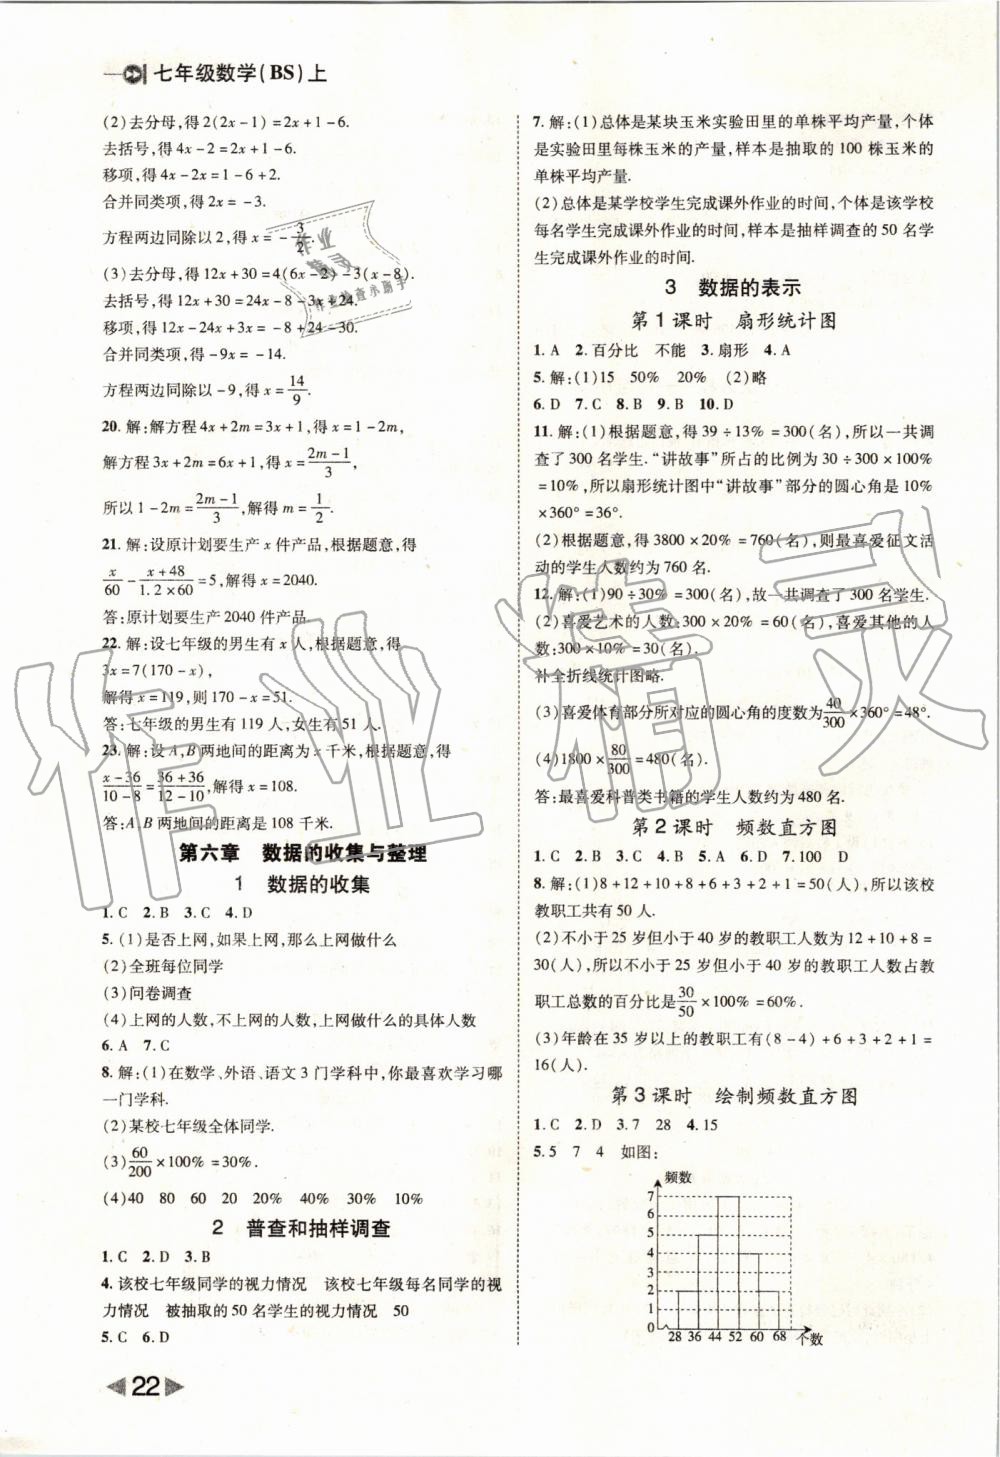 七年级数学(BS)上
(2)去分母,得2(2x-1)=2x+1-6.
去括号,得4x-2=2x+1-6.
移项,得4x-2x=1-6+2.
合并同类项,得2x=-3.
方程两边同除以2,得x=-3/2.
(3)去分母,得12x+30=4(6x-2)-3(x-8).
去括号,得12x+30=24x-8-3x+24.
移项,得12x-24x+3x=-8+24-30.
合并同类项,得-9x=-14.
方程两边同除以-9,得x=14/9.
20.解:解方程4x+2m=3x+1,得x=1-2m,
解方程3x+2m=6x+1,得x=(2m-1)/3,
所以1-2m=(2m-1)/3,解得m=1/2.
21.解:设原计划要生产x件产品,根据题意,得
x/60-(x+48)/(1.2×60)=5,解得x=2040.
答:原计划要生产2040件产品.
22.解:设七年级的男生有x人,根据题意,得
3x=7(170-x),
解得x=119,则170-x=51.
答:七年级的男生有119人,女生有51人.
23.解:设A,B两地间的距离为x千米,根据题意,得
(x-36)/(10-8)=(36+36)/(12-10),解得x=108.
答:A,B两地间的距离是108千米.
第六章 数据的收集与整理
1 数据的收集
1.C 2.B 3.C 4.D
5.(1)是否上网,如果上网,那么上网做什么
(2)全班每位同学
(3)问卷调查
(4)上网的人数,不上网的人数,上网做什么的具体人数
6.A 7.C
8.解:(1)在数学、外语、语文3门学科中,你最喜欢学习哪
一门学科.
(2)某校七年级全体同学.
(3)60/200×100%=30%.
(4)40 80 60 20 20% 40% 30% 10%
2 普查和抽样调查
1.C 2.D 3.B
4.该校七年级同学的视力情况 该校七年级每名同学的视
力情况 被抽取的50名学生的视力情况 50
5.C 6.D
22
7.解:(1)总体是某块玉米实验田里的单株平均产量,个体
是实验田里每株玉米的产量,样本是抽取的100株玉米的
单株平均产量.
(2)总体是某学校学生完成课外作业的时间,个体是该学校
每名学生完成课外作业的时间,样本是抽样调查的50名学
生完成课外作业的时间.
3 数据的表示
第1课时 扇形统计图
1.A 2.百分比 不能 3.扇形 4.A
5.解:(1)15 50% 20% (2)略
6.D 7.C 8.B 9.B 10.D
11.解:(1)根据题意,得39÷13%=300(名),所以一共调
查了300名学生.“讲故事”所占的比例为30÷300×100%
=10%,所以扇形统计图中“讲故事”部分的圆心角是10%
×360°=36°.
(2)根据题意,得3800×20%=760(名),则最喜爱征文活
动的学生人数约为760名.
12.解:(1)90÷30%=300(名),故一共调查了300名学生.
(2)喜爱艺术的人数:300×20%=60(名),喜爱其他的人
数:300×10%=30(名).
补全折线统计图略.
(3)喜爱体育部分所对应的圆心角的度数为40/300×360°=48°.
(4)1800×80/300=480(名).
答:最喜爱科普类书籍的学生人数约为480名.
第2课时 频数直方图
1.C 2.D 3.C 4.B 5.A 6.D 7.100 D
8.解:(1)8+12+10+8+6+3+2+1=50(人),所以该校
教职工共有50人.
(2)不小于25岁但小于40岁的教职工人数为12+10+8=
30(人),所以不小于25岁但小于40岁的教职工人数占教
职工总数的百分比是30/50×100%=60%.
(3)年龄在35岁以上的教职工有(8-4)+6+3+2+1=
16(人).
第3课时 绘制频数直方图
1.C 2.D 3.7 28 4.15
5.5 7 4 如图:
频数
7
6
5
4
3
2
1
0
28 36 44 52 60 68 个数
作业精灵
作业
精灵
作业检查小助手